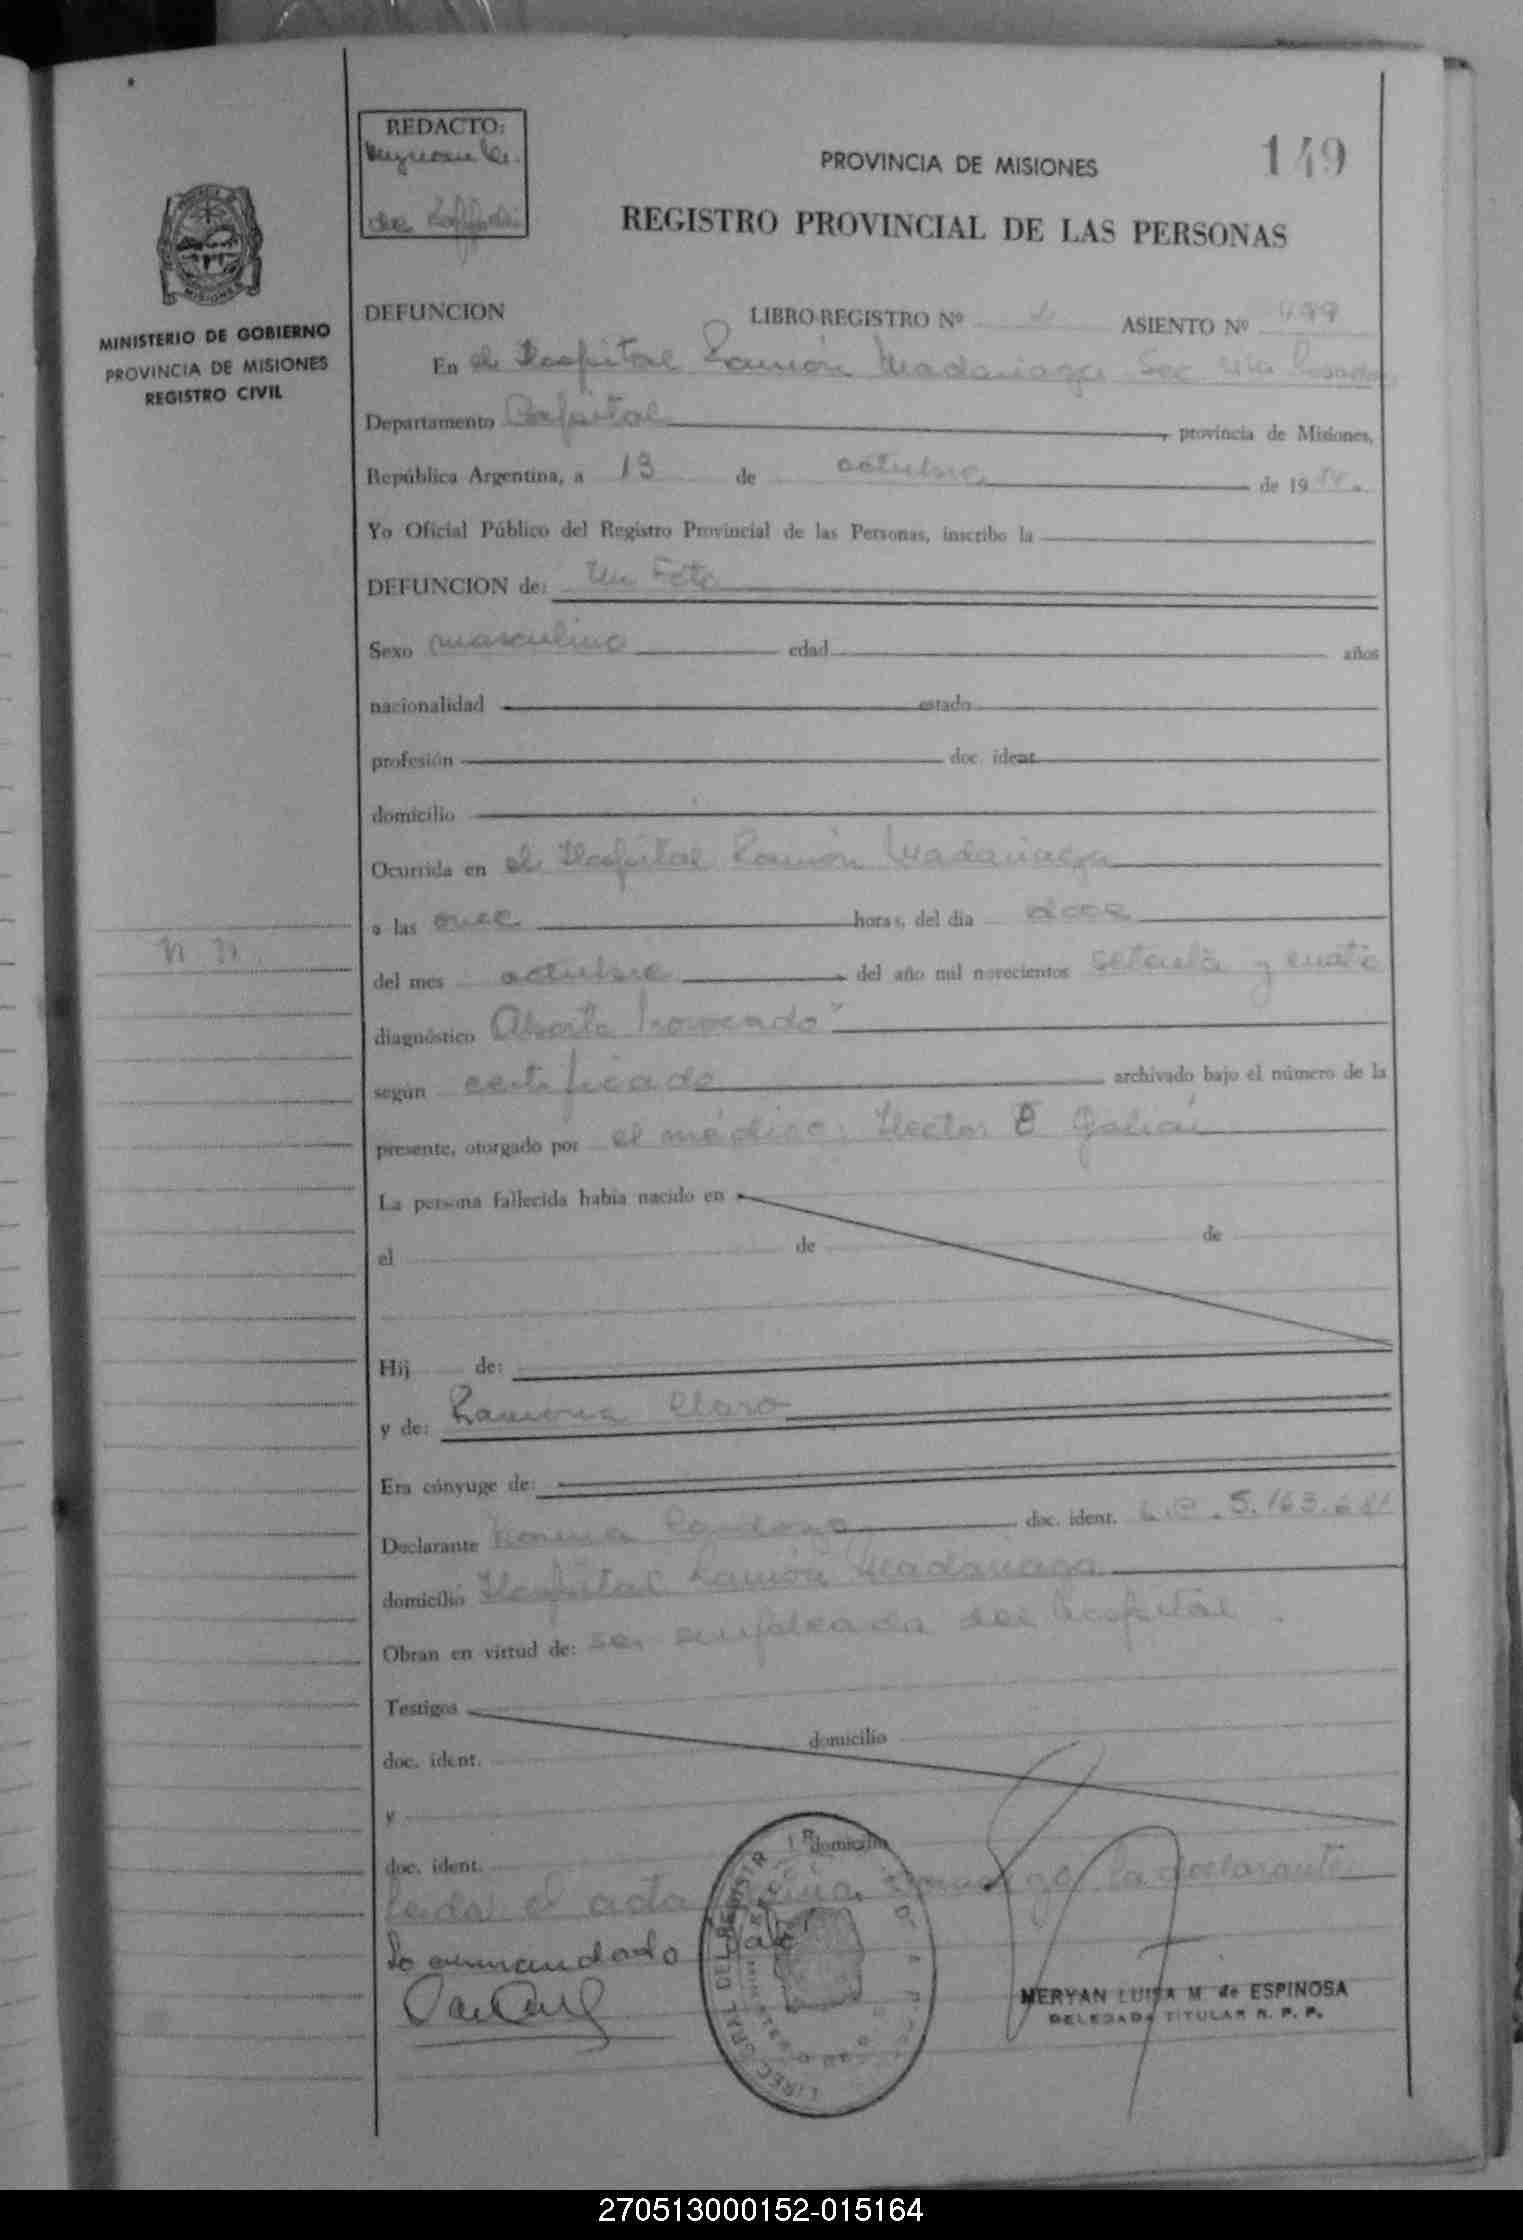 REDACTO:
de
PROVINCIA DE MISIONES
149
REGISTRO PROVINCIAL DE LAS PERSONAS
MISIONES
MINISTERIO DE GOBIERNO
PROVINCIA DE MISIONES
REGISTRO CIVIL
DEFUNCION LIBRO-REGISTRO Nº ASIENTO Nº 499
En el Hospital Ramón Madariaga Sec
Departamento Capital, provincia de Misiones,
República Argentina, a 13 de octubre de 1974.
Yo Oficial Público del Registro Provincial de las Personas, inscribo la
DEFUNCION de: Un Feto
Sexo masculino edad años
nacionalidad estado
profesión doc. ident.
domicilio
Ocurrida en el Hospital Ramón Madariaga
a las once horas, del día doce
N.N.
del mes octubre del año mil novecientos setenta y cuatro
diagnóstico Aborto Provocado"
según certificado archivado bajo el número de la
presente, otorgado por el médico: Hector
La persona fallecida había nacido en
el de de
Hij de:
y de: Ramona Claro
Era cónyuge de:
Declarante Norma doc. ident. L.C. 5.163.681
domicilio Hospital Ramón Madariaga
Obran en virtud de: ser empleada del hospital.
Testigos
doc. ident. domicilio
y
doc. ident. domicilio
Leída el acta la declarante
MERYAN LUISA M. de ESPINOSA
DELEGADA TITULAR R. P. P.
270513000152-015164